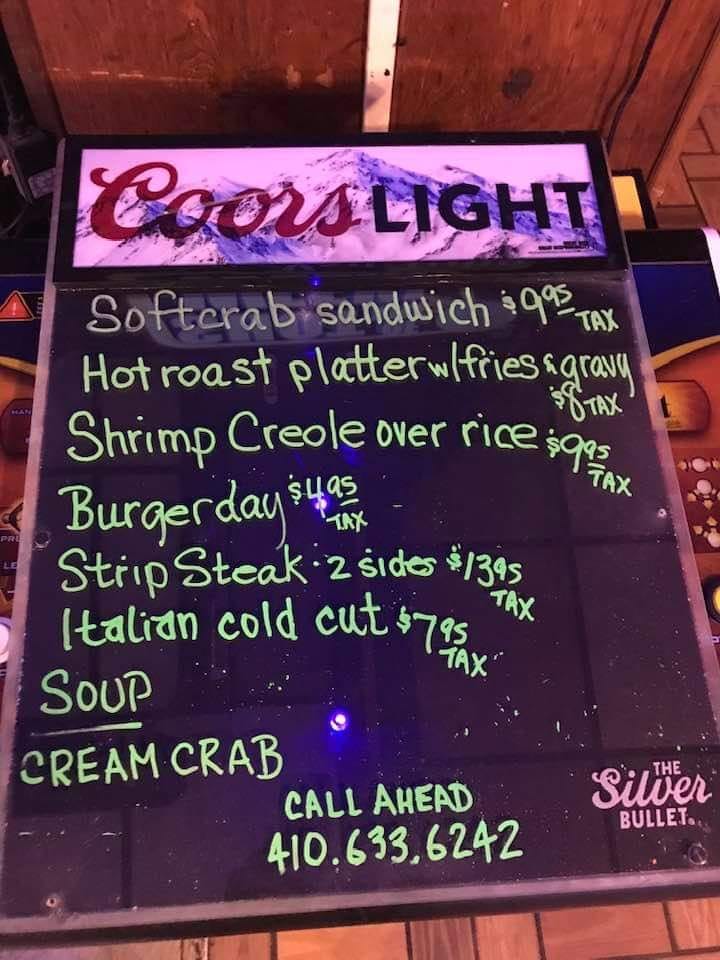 Coors LIGHT
Softcrab sandwich $9.95 TAX
Hot roast platter w/fries & gravy
$8 TAX
Shrimp Creole over rice $9.95
TAX
Burger day $4.95
TAX
Strip Steak · 2 sides $13.95
TAX
Italian cold cut $7.95
TAX
SOUP
CREAM CRAB
CALL AHEAD
410.633.6242
THE
Silver
BULLET.